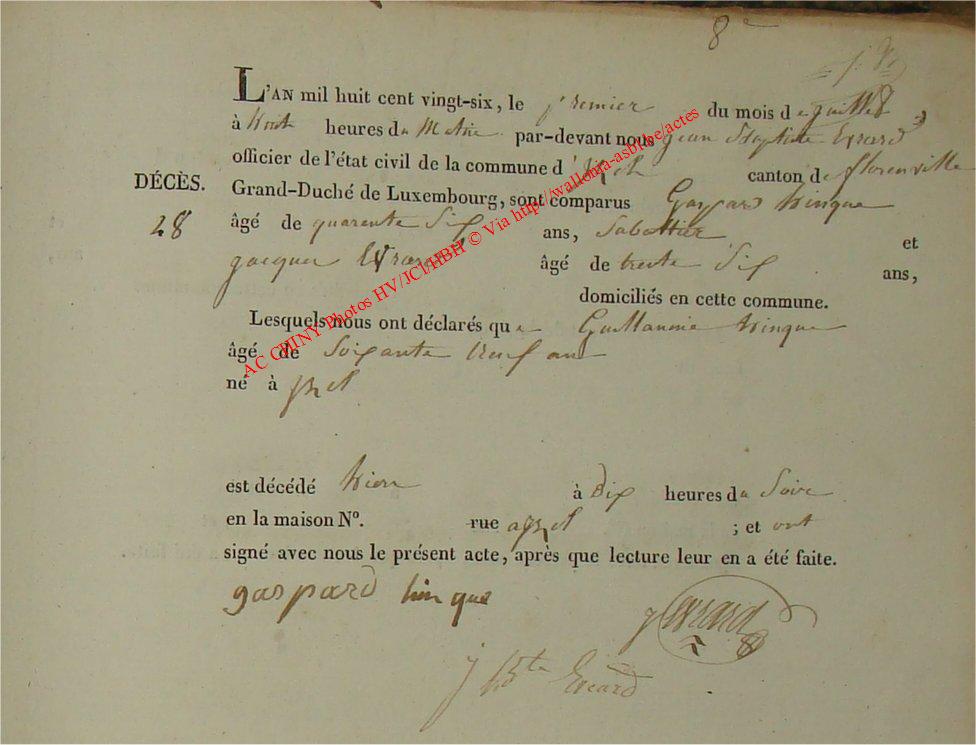 8e
L'AN mil huit cent vingt-six, le premier du mois de juillet
à huit heures du Matin par-devant nous jean Baptiste Evrard
officier de l'état civil de la commune d' canton de florenville
DÉCÈS.
Grand-Duché de Luxembourg, sont comparus Gaspard hinque
28
âgé de quarente Six ans, Sabottier et
jacque Evrard âgé de trente Six ans,
domiciliés en cette commune.
Lesquels nous ont déclarés que hinque
âgé de Soixante neuf an
né à
est décédé hier à Dix heures du Soire
en la maison No. rue ; et ont
signé avec nous le présent acte, après que lecture leur en a été faite.
gaspard hinque
j evrard
j Bte Evrard
AC CHINY Photos HV/JCl/HBH © Via http://wallonia-asbl.be/actes